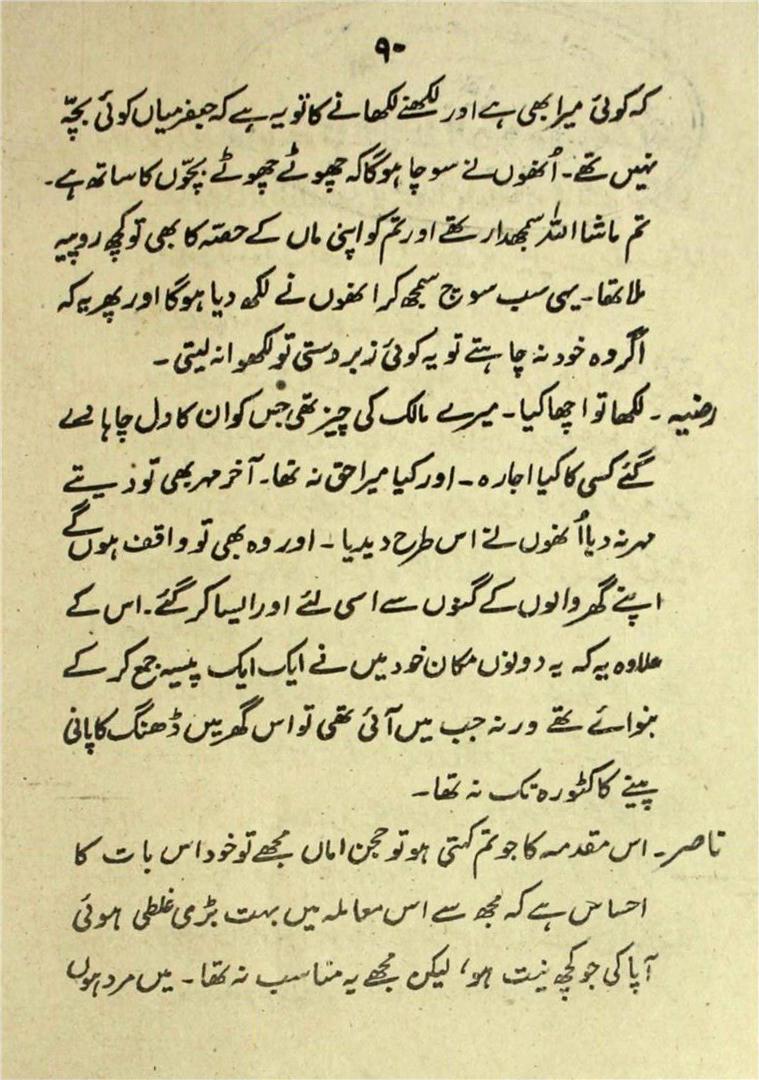 ۹۰
کہ کوئی میرا بھی ہے اور لکھنے لکھانے کا تو یہ ہے کہ جعفر میاں کوئی بچّہ
نہیں تھے۔ اُنھوں نے سوچا ہوگا کہ چھوٹے چھوٹے بچّوں کا ساتھ ہے۔
تم ماشا اللہ سمجھدار تھے اور تم کو اپنی ماں کے حصّہ کا بھی تو کچھ روپیہ
ملا تھا۔ یہی سب سوچ سمجھ کر انھوں نے لکھ دیا ہوگا اور پھر یہ کہ
اگر وہ خود نہ چاہتے تو یہ کوئی زبردستی تو لکھوا نہ لیتی۔
رضیہ۔ لکھا تو اچھا کیا۔ میرے مالک کی چیز تھی جس کو ان کا دل چاہا دے
گئے کسی کا کیا اجارہ۔ اور کیا میرا حق نہ تھا۔ آخر مہر بھی تو دیتے
مہر نہ دیا اُنھوں نے اس طرح دیدیا۔ اور وہ بھی تو واقف ہوں گے
اپنے گھر والوں کے گنوں سے اسی لئے اور ایسا کر گئے۔ اس کے
علاوہ یہ کہ یہ دونوں مکان خود میں نے ایک ایک پیسہ جمع کر کے
بنوائے تھے ورنہ جب میں آئی تھی تو اس گھر میں ڈھنگ کا پانی
پینے کا کٹورہ تک نہ تھا۔
ناصر۔ اس مقدمہ کا جو تم کہتی ہو تو حجن اماں مجھے تو خود اس بات کا
احساس ہے کہ مجھ سے اس معاملہ میں بہت بڑی غلطی ہوئی
آپا کی جو کچھ نیت ہو، لیکن مجھے یہ مناسب نہ تھا۔ میں مرد ہوں